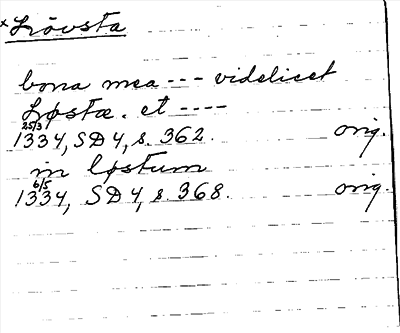 ×Lövsta
bona mea --- videlicet
Løstæ. et ----
25/3
1334, SD 4, s. 362. orig.
in løstum
6/5
1334, SD 4, s. 368. orig.